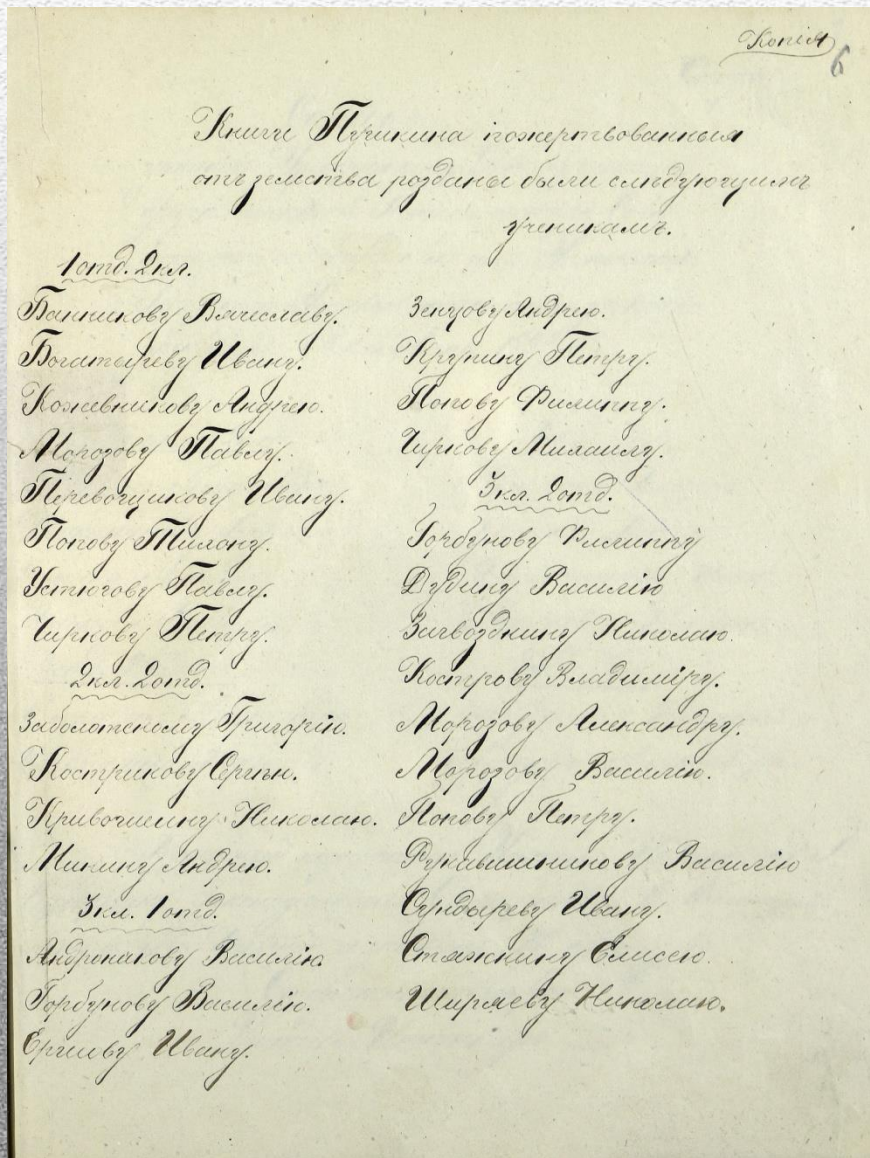 Копія
6
Книги Пушкина пожертвованныя
отъ земства розданы были слѣдующимъ
ученикамъ.
1 отд. 2 кл.
Банникову Вячеславу.
Богатыреву Ивану.
Кожевникову Андрею.
Морозову Павлу.
Перевощикову Ивану.
Попову Тихону.
Устюгову Павлу.
Чиркову Петру.
2 кл. 2 отд.
Заболотскому Григорію.
Кострикову Сергѣю.
Кривошеину Николаю.
Микину Андрею.
3 кл. 1 отд.
Андронакову Василію.
Горбунову Василію.
Ершову Ивану.
Зенцову Андрею.
Крупину Петру.
Попову Филиппу.
Чиркову Михаилу.
3 кл. 2 отд.
Горбунову Филиппу
Дудину Василію
Загвоздкину Николаю.
Кострову Владиміру.
Морозову Александру.
Морозову Василію.
Попову Петру.
Рукавишникову Василію
Сундыреву Ивану.
Стяжкину Елисею.
Ширяеву Николаю.